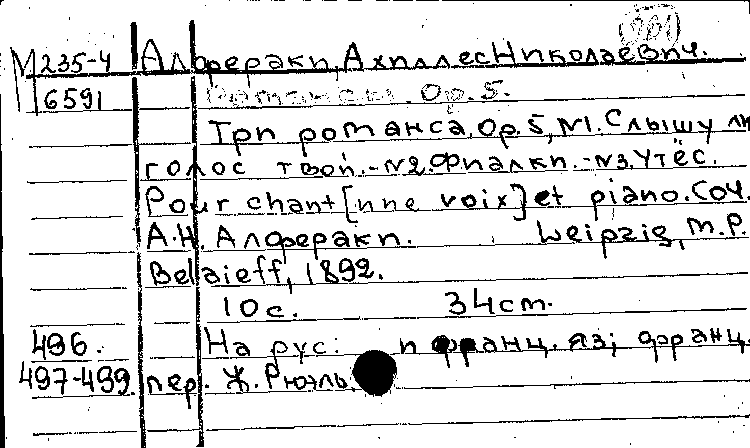 М 235-4 Алфераки, Ахиллес Николаевич.
6591 Романсы. Op. 5.
Три романса, Op. 5, №1. Слышу ли
голос твой. - №2. Фиалки. - №3. Утёс.
Pour chant [une voix] et piano. Соч.
А.Н. Алфераки. Leipzig, M.P.
Belaieff, 1892.
10 с. 34 cm.
496. На рус: и франц. яз; франц.
497-499. пер. Ж. Рюэль.